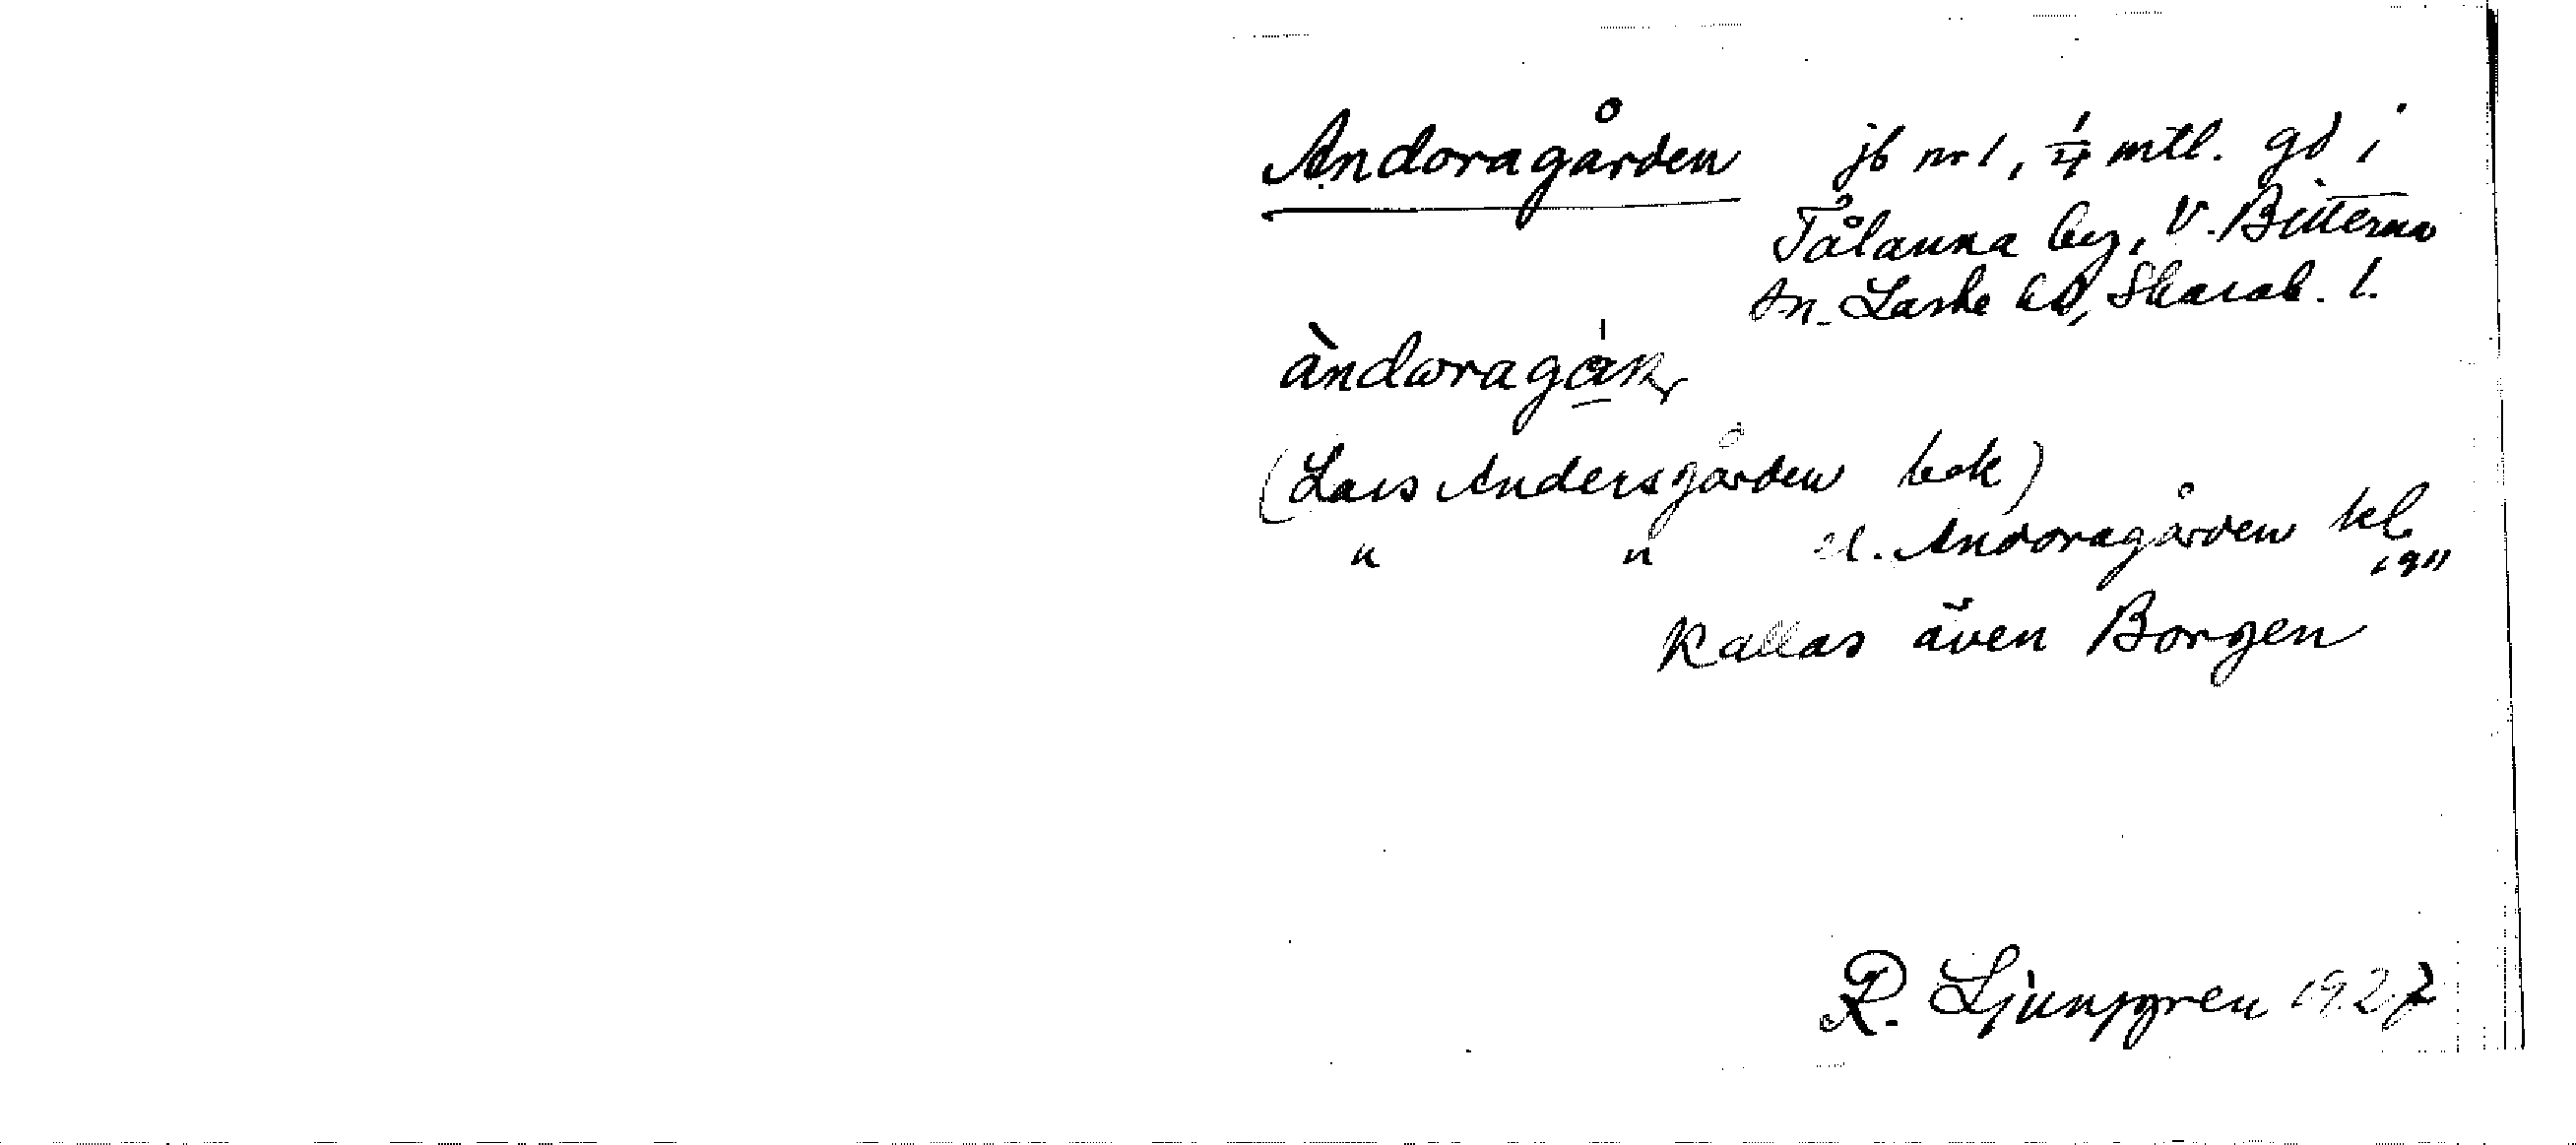 Andoragården jb nr 1, 1/4 mtl. gd i
Tålanna by, V. Bitterna
sn. Laske hd, Skarab. l.
(Lars Andersgården bek)
" " el. Andoragården kl
1911
Kallas även Borgen
R. Ljunggren 1927